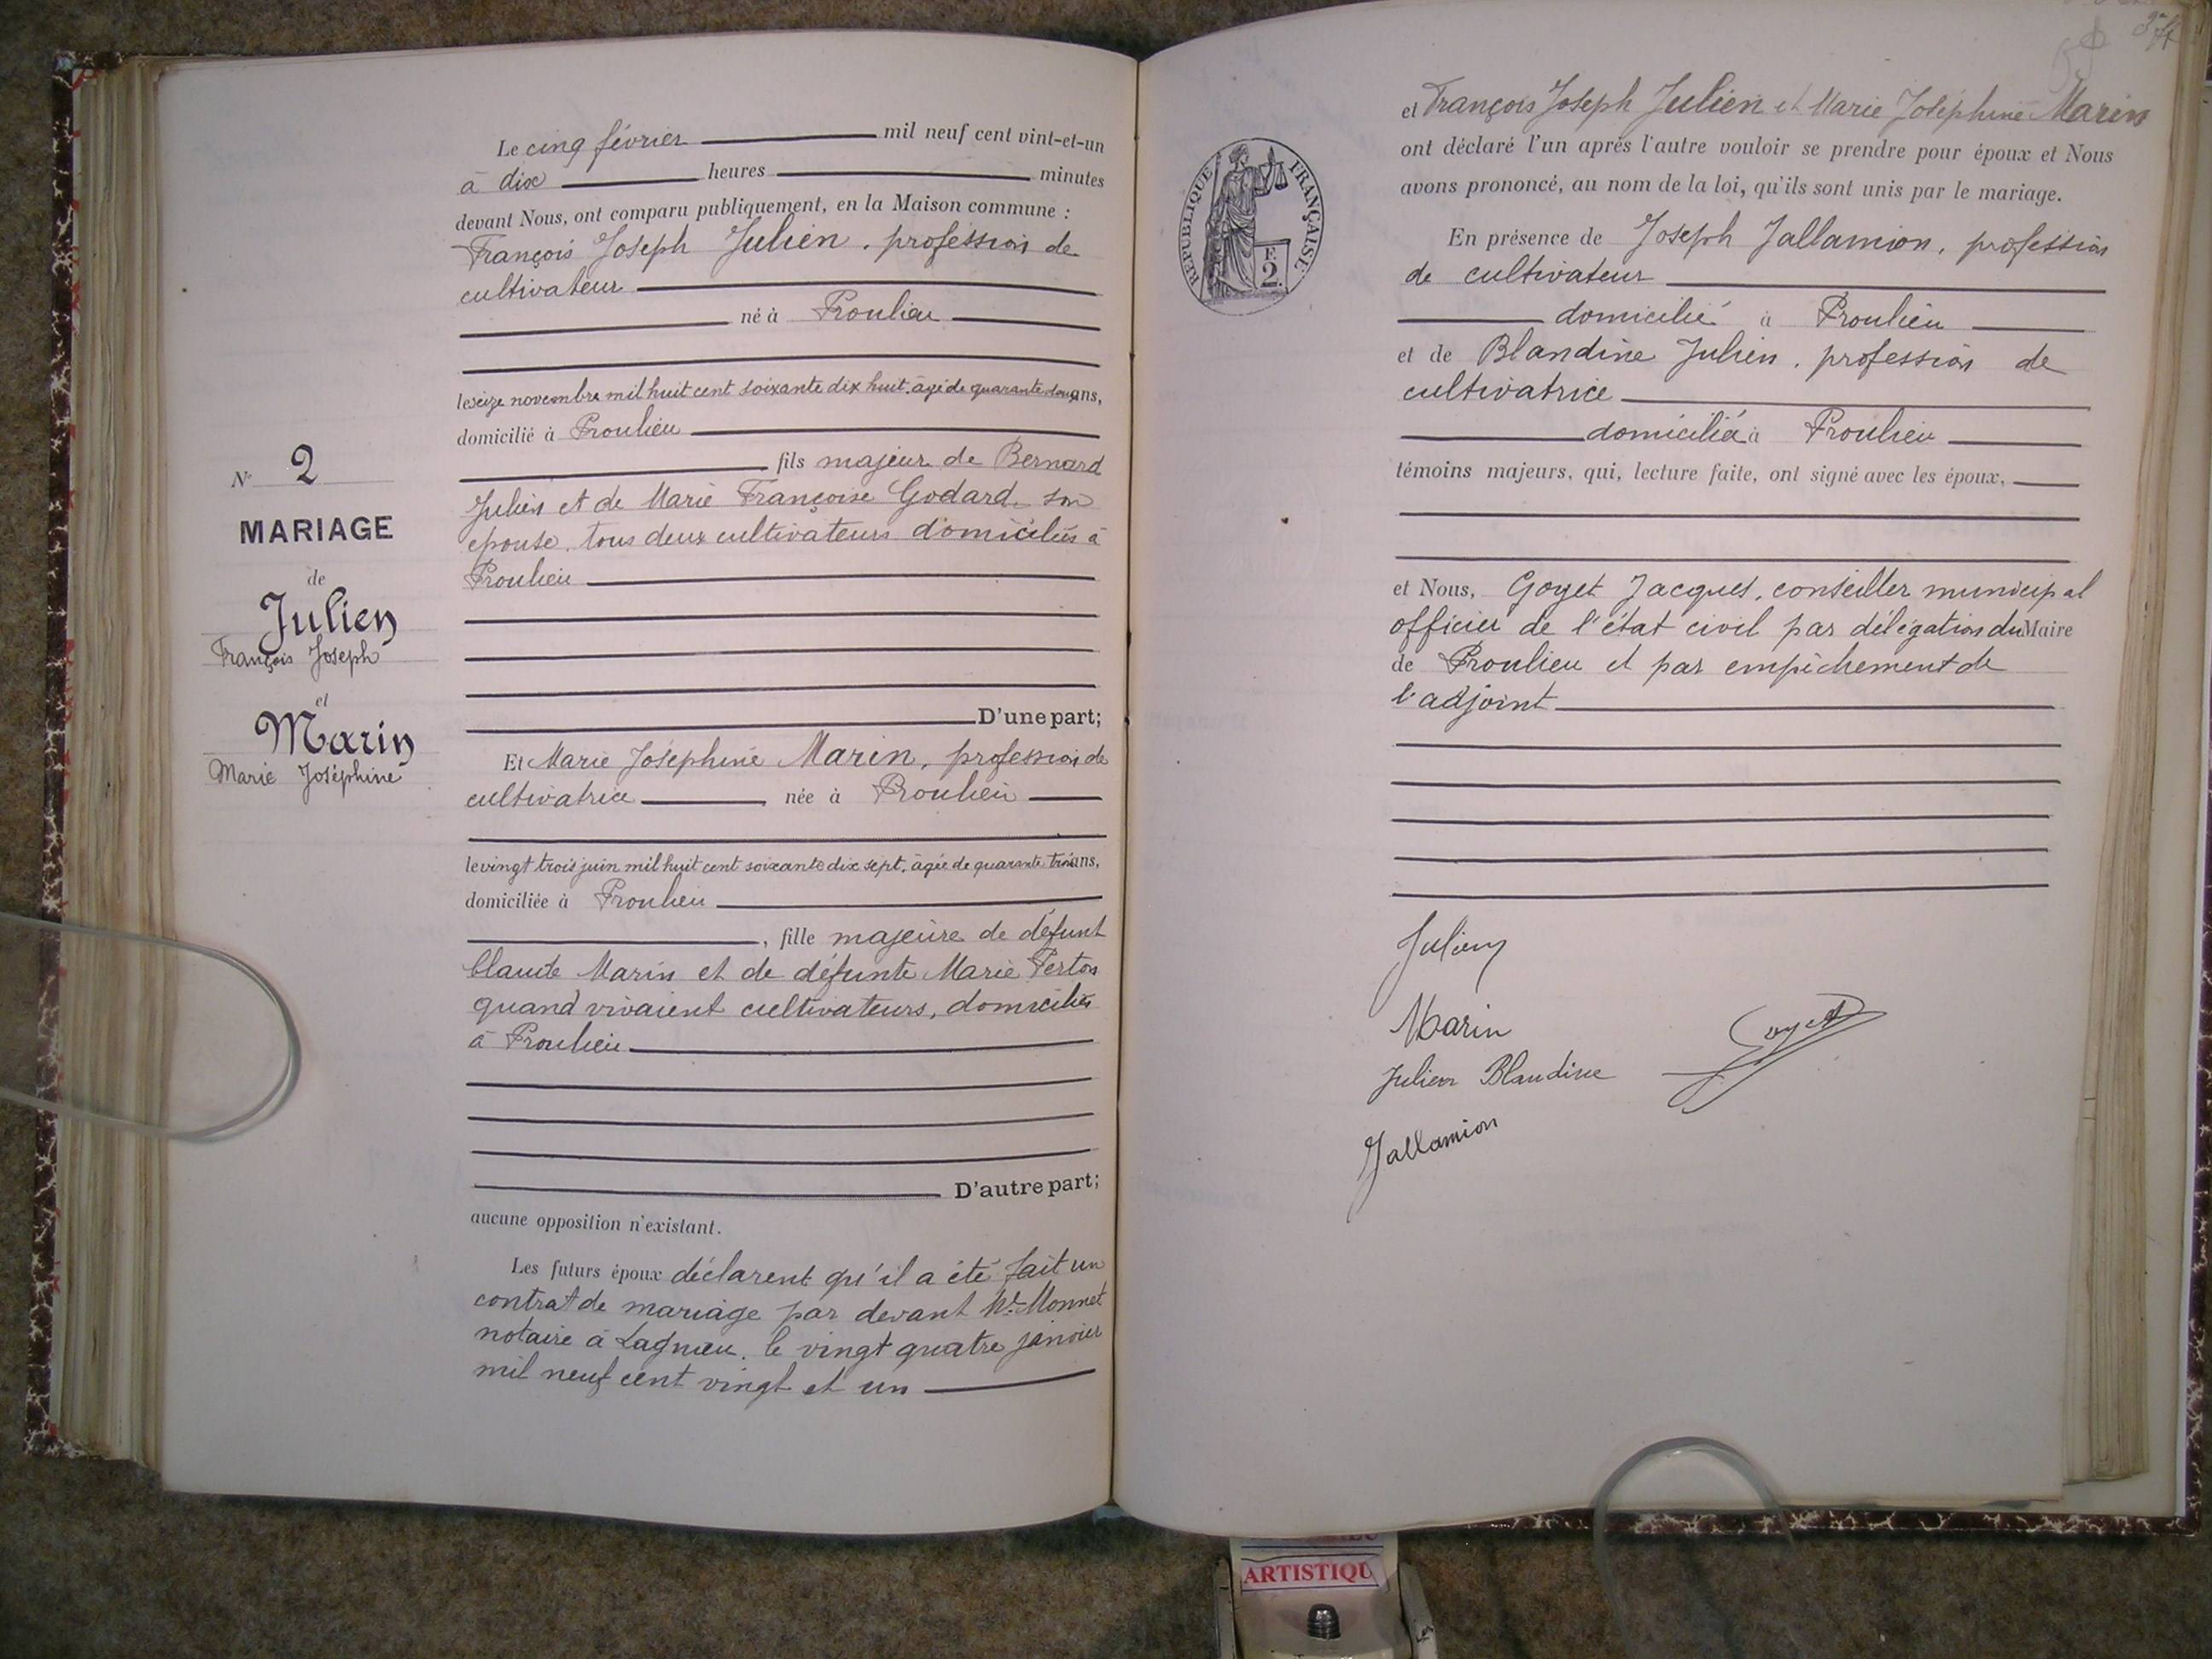 Le cinq février mil neuf cent vint-et-un
à dix heures minutes
devant Nous, ont comparu publiquement, en la Maison commune :
François Joseph Julien, profession de
cultivateur
né à Proulieu
le seize novembre mil huit cent soixante dix huit, âgé de quarante deux ans,
domicilié à Proulieu
fils majeur de Bernard
Julien et de Marie Françoise Godard son
épouse, tous deux cultivateurs domiciliés à
Proulieu
D'une part;
N° 2
MARIAGE
de
Julien
François Joseph
et
Marin
Marie Joséphine
Et Marie Joséphine Marin, profession de
cultivatrice, née à Proulieu
le vingt trois juin mil huit cent soixante dix sept, âgée de quarante trois ans,
domiciliée à Proulieu
, fille majeure de défunt
Claude Marin et de défunte Marie Perton
quand vivaient cultivateurs, domiciliés
à Proulieu
D'autre part;
aucune opposition n'existant.
Les futurs époux déclarent qu'il a été fait un
contrat de mariage par devant Me Monnet
notaire à Lagnieu, le vingt quatre janvier
mil neuf cent vingt et un
et François Joseph Julien et Marie Joséphine Marin
ont déclaré l'un après l'autre vouloir se prendre pour époux et Nous
avons prononcé, au nom de la loi, qu'ils sont unis par le mariage.
RÉPUBLIQUE FRANÇAISE
F.
2.
En présence de Joseph Jallamion, profession
de cultivateur
domicilié à Proulieu
et de Blandine Julien, profession de
cultivatrice
domiciliée à Proulieu
témoins majeurs, qui, lecture faite, ont signé avec les époux,
et Nous, Goyet Jacques, conseiller municipal
officier de l'état civil par délégation du Maire
de Proulieu et par empêchement de
l'adjoint
Julien
Marin
Goyet
Julien Blandine
Jallamion
ARTISTIQU